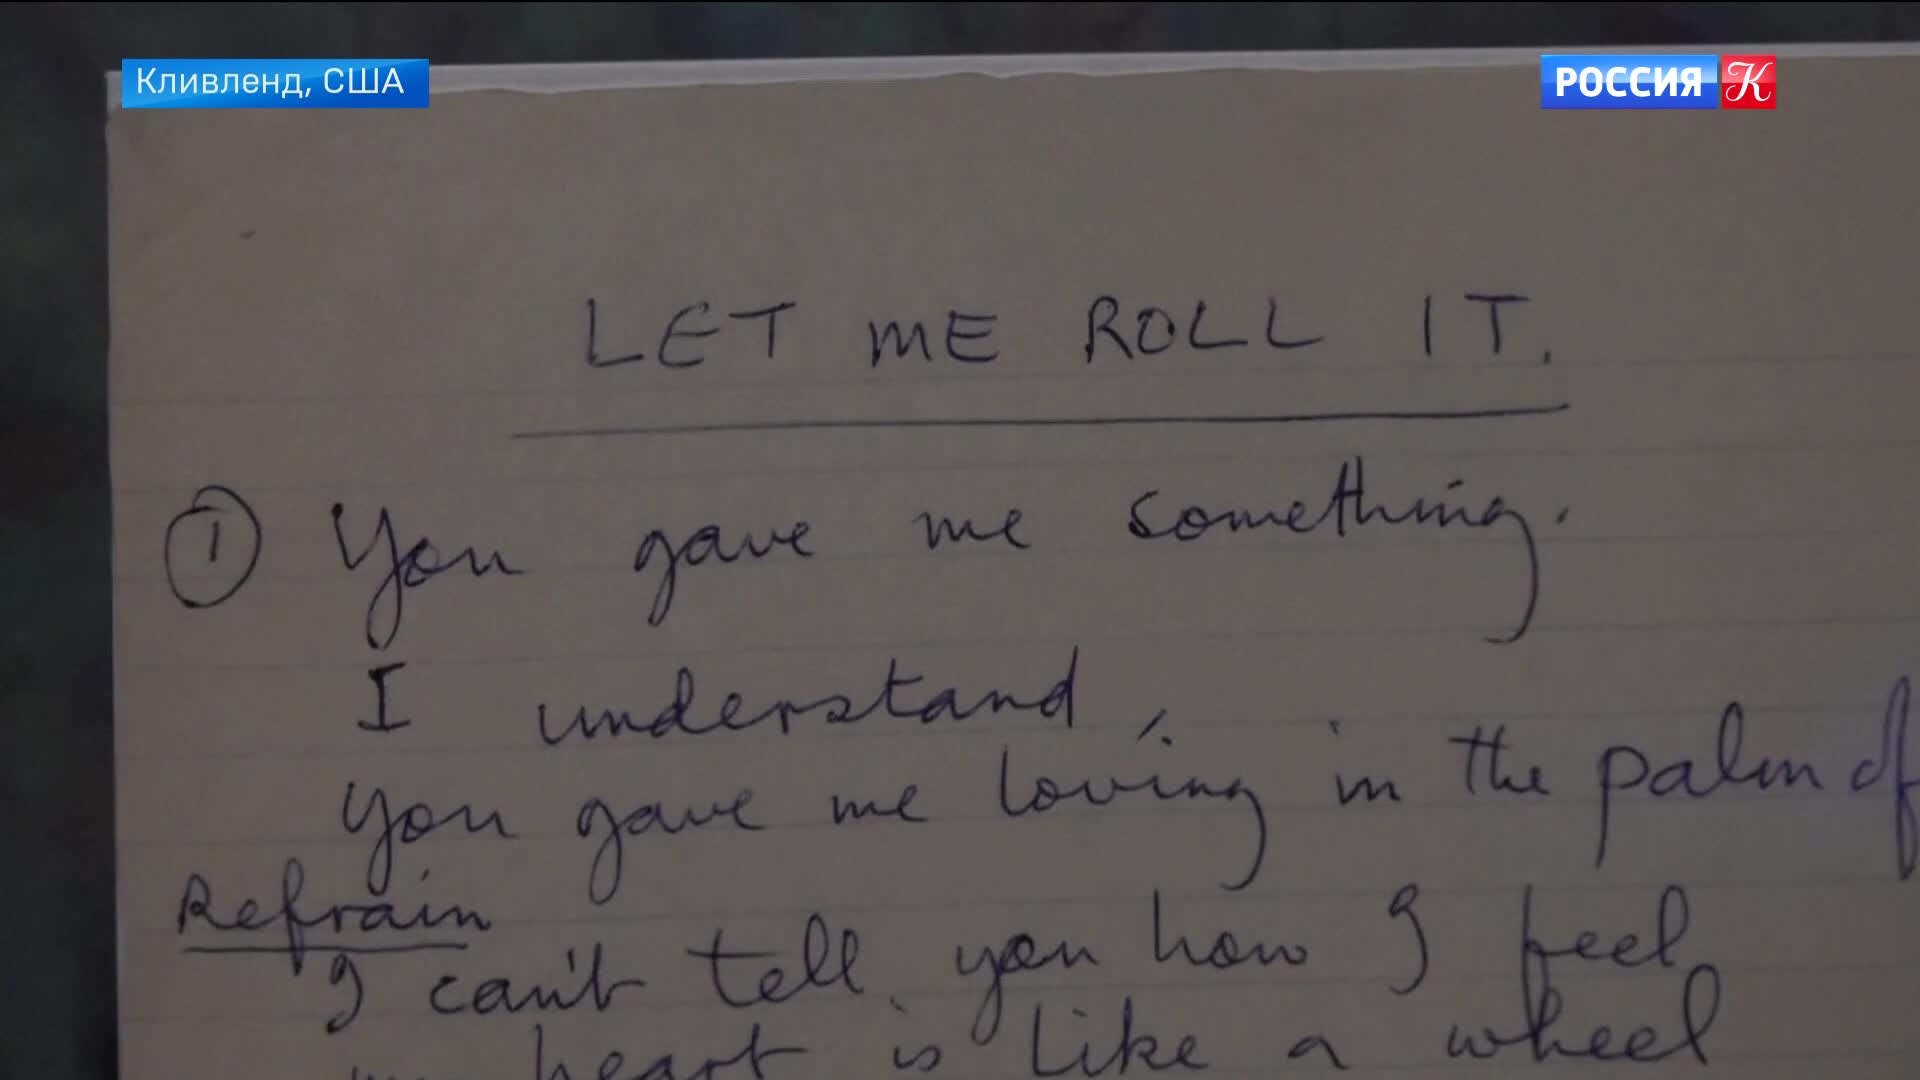 Кливленд, США
РОССИЯ К
LET ME ROLL IT.
① You gave me something.
I understand,
You gave me loving in the palm of
Refrain
I can't tell you how I feel
my heart is like a wheel